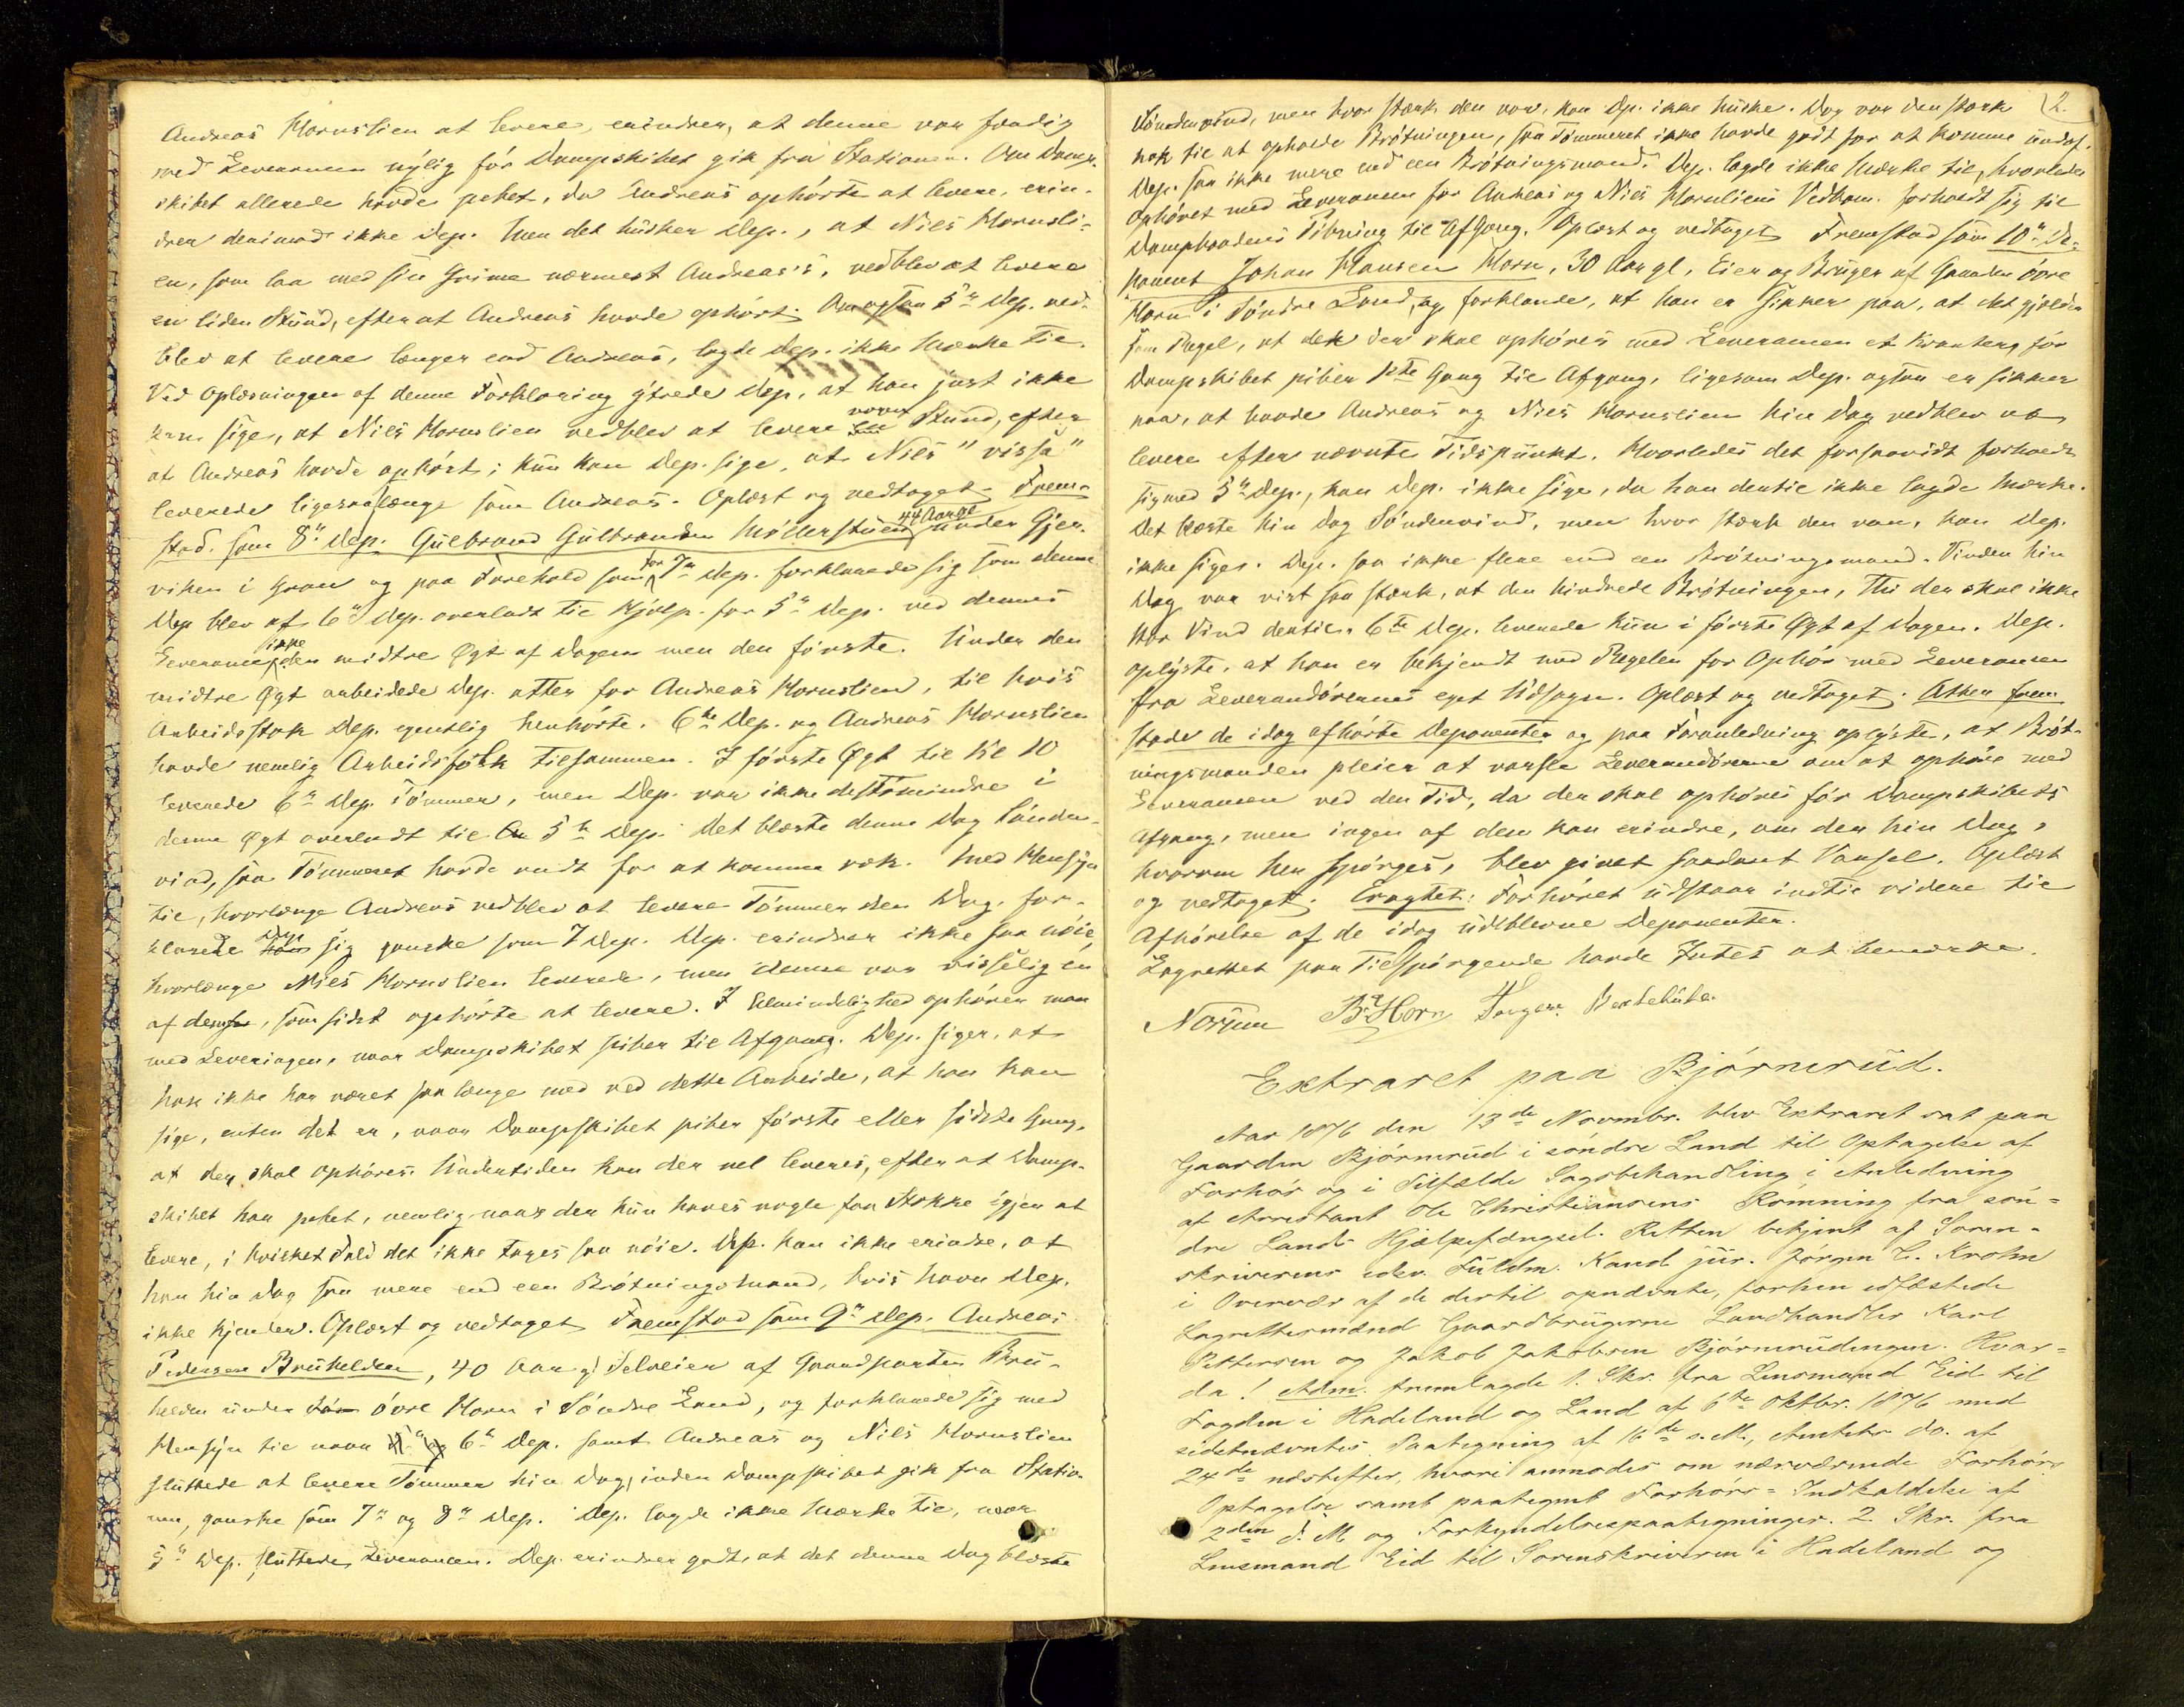 Andreas Hornslien at levere, erindrer, at denne var færdig
med Leverancen nylig før Dampskibet gik fra Stationen. Om Damp-
skibet allerede havde pebet, da Andreas ophørte at levere, erin-
drer derimod ikke Dep. Men det husker Dep., at Niels Hornsli-
en, som laa med sin Grime nærmest Andreas's, vedblev at levere
en liden Stund, efter at Andreas havde ophørt. Om ogsaa 5te Dep. ved-
blev at levere længer end Andreas, lagde Dep. ikke Mærke til.
Ved Oplæsningen af denne Forklaring ytrede Dep., at han just ikke
kan sige, at Niels Hornslien vedblev at levere noget Stund, efter
at Andreas havde ophørt; kun kan Dep. sige, at Niels "vissa"
leverede ligesaalænge som Andreas. Oplæst og vedtaget. Frem-
stod som 8de Dep. Gulbrand Gulbrandsen Möllerstuen 44 Aar gl. under Gjer-
viken i Gran og paa Forehold som for 7de Dep. forklarede sig som denne
Dep blev af 6te Dep. overladt til Hjælp for 5te Dep. ved dennes
Leverance ikke den midtre Øgt af Dagen men den første. Under den
midtre Øgt arbeidede Dep. atter for Andreas Hornslien, til hvis
Arbeidsstok Dep. egentlig henhørte. 6te Dep. og Andreas Hornslien
havde nemlig Arbeidsfolk tilsammen. I første Øgt til Kl 10
leverede 6te Dep. Tømmer, men Dep. var ikke destomindre i
denne Øgt overladt til 5te Dep. Det blæste denne Dag Sönden-
vind, saa Tømmeret havde ondt for at komme væk. Med Hensyn
til, hvorlænge Andreas vedblev at levere Tømmer den Dag, for-
klarede Dep. sig ganske som 7 Dep. Dep. erindrer ikke saa nøie,
hvorlænge Niels Hornslien leverede, men denne var visselig en
af dem, som sidst ophørte at levere. I Almindelighed ophører man
med Leveringen, naar Dampskibet piber til Afgang. Dep. siger, at
han ikke har været saa længe med ved dette Arbeide, at han kan
sige, enten det er, naar Dampskibet piber første eller sidste Gang,
at der skal ophøres. Undertiden kan der vel leveres, efter at Damp-
skibet har pebet, nemlig naar der kun haves nogle faa Stokke igjen at
levere, i hvilket Fald det ikke tages saa nøie. Dep. kan ikke erindre, at
han hin Dag saa mere end een Brøtningsmand, hvis Navn Dep.
ikke kjender. Oplæst og vedtaget. Fremstod som 9de Dep. Andreas
Pedersen Bruhelden, 40 Aar gl. Selveier af Gaardparten Bru-
helden under övre Horn i Søndre Land, og forklarede sig med
Hensyn til naar 6te Dep. samt Andreas og Niels Hornslien
sluttede at levere Tømmer hin Dag, inden Dampskibet gik fra Statio-
nen, ganske som 7de og 8de Dep. Dep. lagde ikke Mærke til, naar
5te Dep. sluttede Leverancen. Dep. erindrer godt, at det denne Dag blæste
2.
Søndenvind, men hvor stærk den var, kan Dp. ikke huske. Dog var den stærk
nok til at opholde Brøtningen, saa Tømmeret ikke havde godt for at komme undaf.
Dep. saa ikke mere end een Brøtningsmand. Dep. lagde ikke Mærke til, hvorledes
Ophøret med Leverancen for Andreas og Niels Hornsliens Vedkom. forholdt sig til
Dampbaadens Pibning til Afgang. Oplæst og vedtaget. Fremstod som 10de De-
ponent Johan Hansen Horn, 30 Aar gl., Eier og Bruger af Gaarden övre
Horn i Søndre Land, og forklarede, at han er sikker paa, at det gjælder
som Regel, at der skal ophøres med Leverancen et Kvarters før
Dampskibet piber 1ste Gang til Afgang, ligesom Dep. ogsaa er sikker
paa, at baade Andreas og Niels Hornslien hin Dag vedblev at
levere efter nævnte Tidspunkt. Hvorledes det forsaavidt forholdt
sig med 5te Dep., kan Dep. ikke sige, da han dertil ikke lagde Mærke.
Det blæste hin Dag Söndenvind, men hvor stærk den var, kan Dep.
ikke sige. Dep. saa ikke flere end een Brøtningsmand. Vinden hin
Dag var vist saa stærk, at den hindrede Brøtningen, thi der skal ikke
stor Vind dertil. 6te Dep. leverede kun i første Øgt af Dagen. Dep.
oplyste, at han er bekjendt med Regelen for Ophør med Leverancen
fra Leverandørernes eget Udsagn. Oplæst og vedtaget. Atter frem
stode de idag afhørte Deponenter og paa Foranledning oplyste, at Brøt-
ningsmanden pleier at varsle Leverandørerne om at ophøre med
Leverancen ved den Tid, da der skal ophøres før Dampskibets
Afgang, men ingen af dem kan erindre, om der hin Dag,
hvorom her spørges, blev givet saadant Varsel. Oplæst
og vedtaget. Eragtet: Forhøret udstaar indtil videre til
Afhørelse af de idag udeblevne Deponenter.
Lagrettet paa Tilspørgende havde Intet at bemærke.
Norum B. Horn
Extraret paa Bjørnerud.
Aar 1876 den 13de Novmbr. blev Extraret sat paa
Gaarden Bjørnerud i söndre Land til Optagelse af
Forhør og i Tilfælde Sagsbehandling i Anledning
af Arrestant Ole Christiansens Rømning fra søn-
dre Lands Hjælpefængsel. Retten betjent af Soren-
skriverens edsv. Fuldm. Kand jur. Jörgen L. Krohn
i Overvær af de dertil opnævnte, forhen edfæstede
Lagrettesmænd Gaardbrugerne Landhandler Karl
Pettersen og Jakob Jakobsen Bjørnerudengen. Hvor-
da! Adm. fremlagde 1. Skr. fra Lensmand Eid til
Fogden i Hadeland og Land af 6te Oktbr. 1876 med
sidstnævntes Paategning af 16de s. M., Amtets do. af
24de næstefter, hvori anmodes om nærværende Forhörs
Optagelse samt paategnet Forhørs-Indkaldelse af
2den d. M. og Forkyndelsespaategninger. 2. Skr. fra
Lensmand Eid til Sorenskriveren i Hadeland og